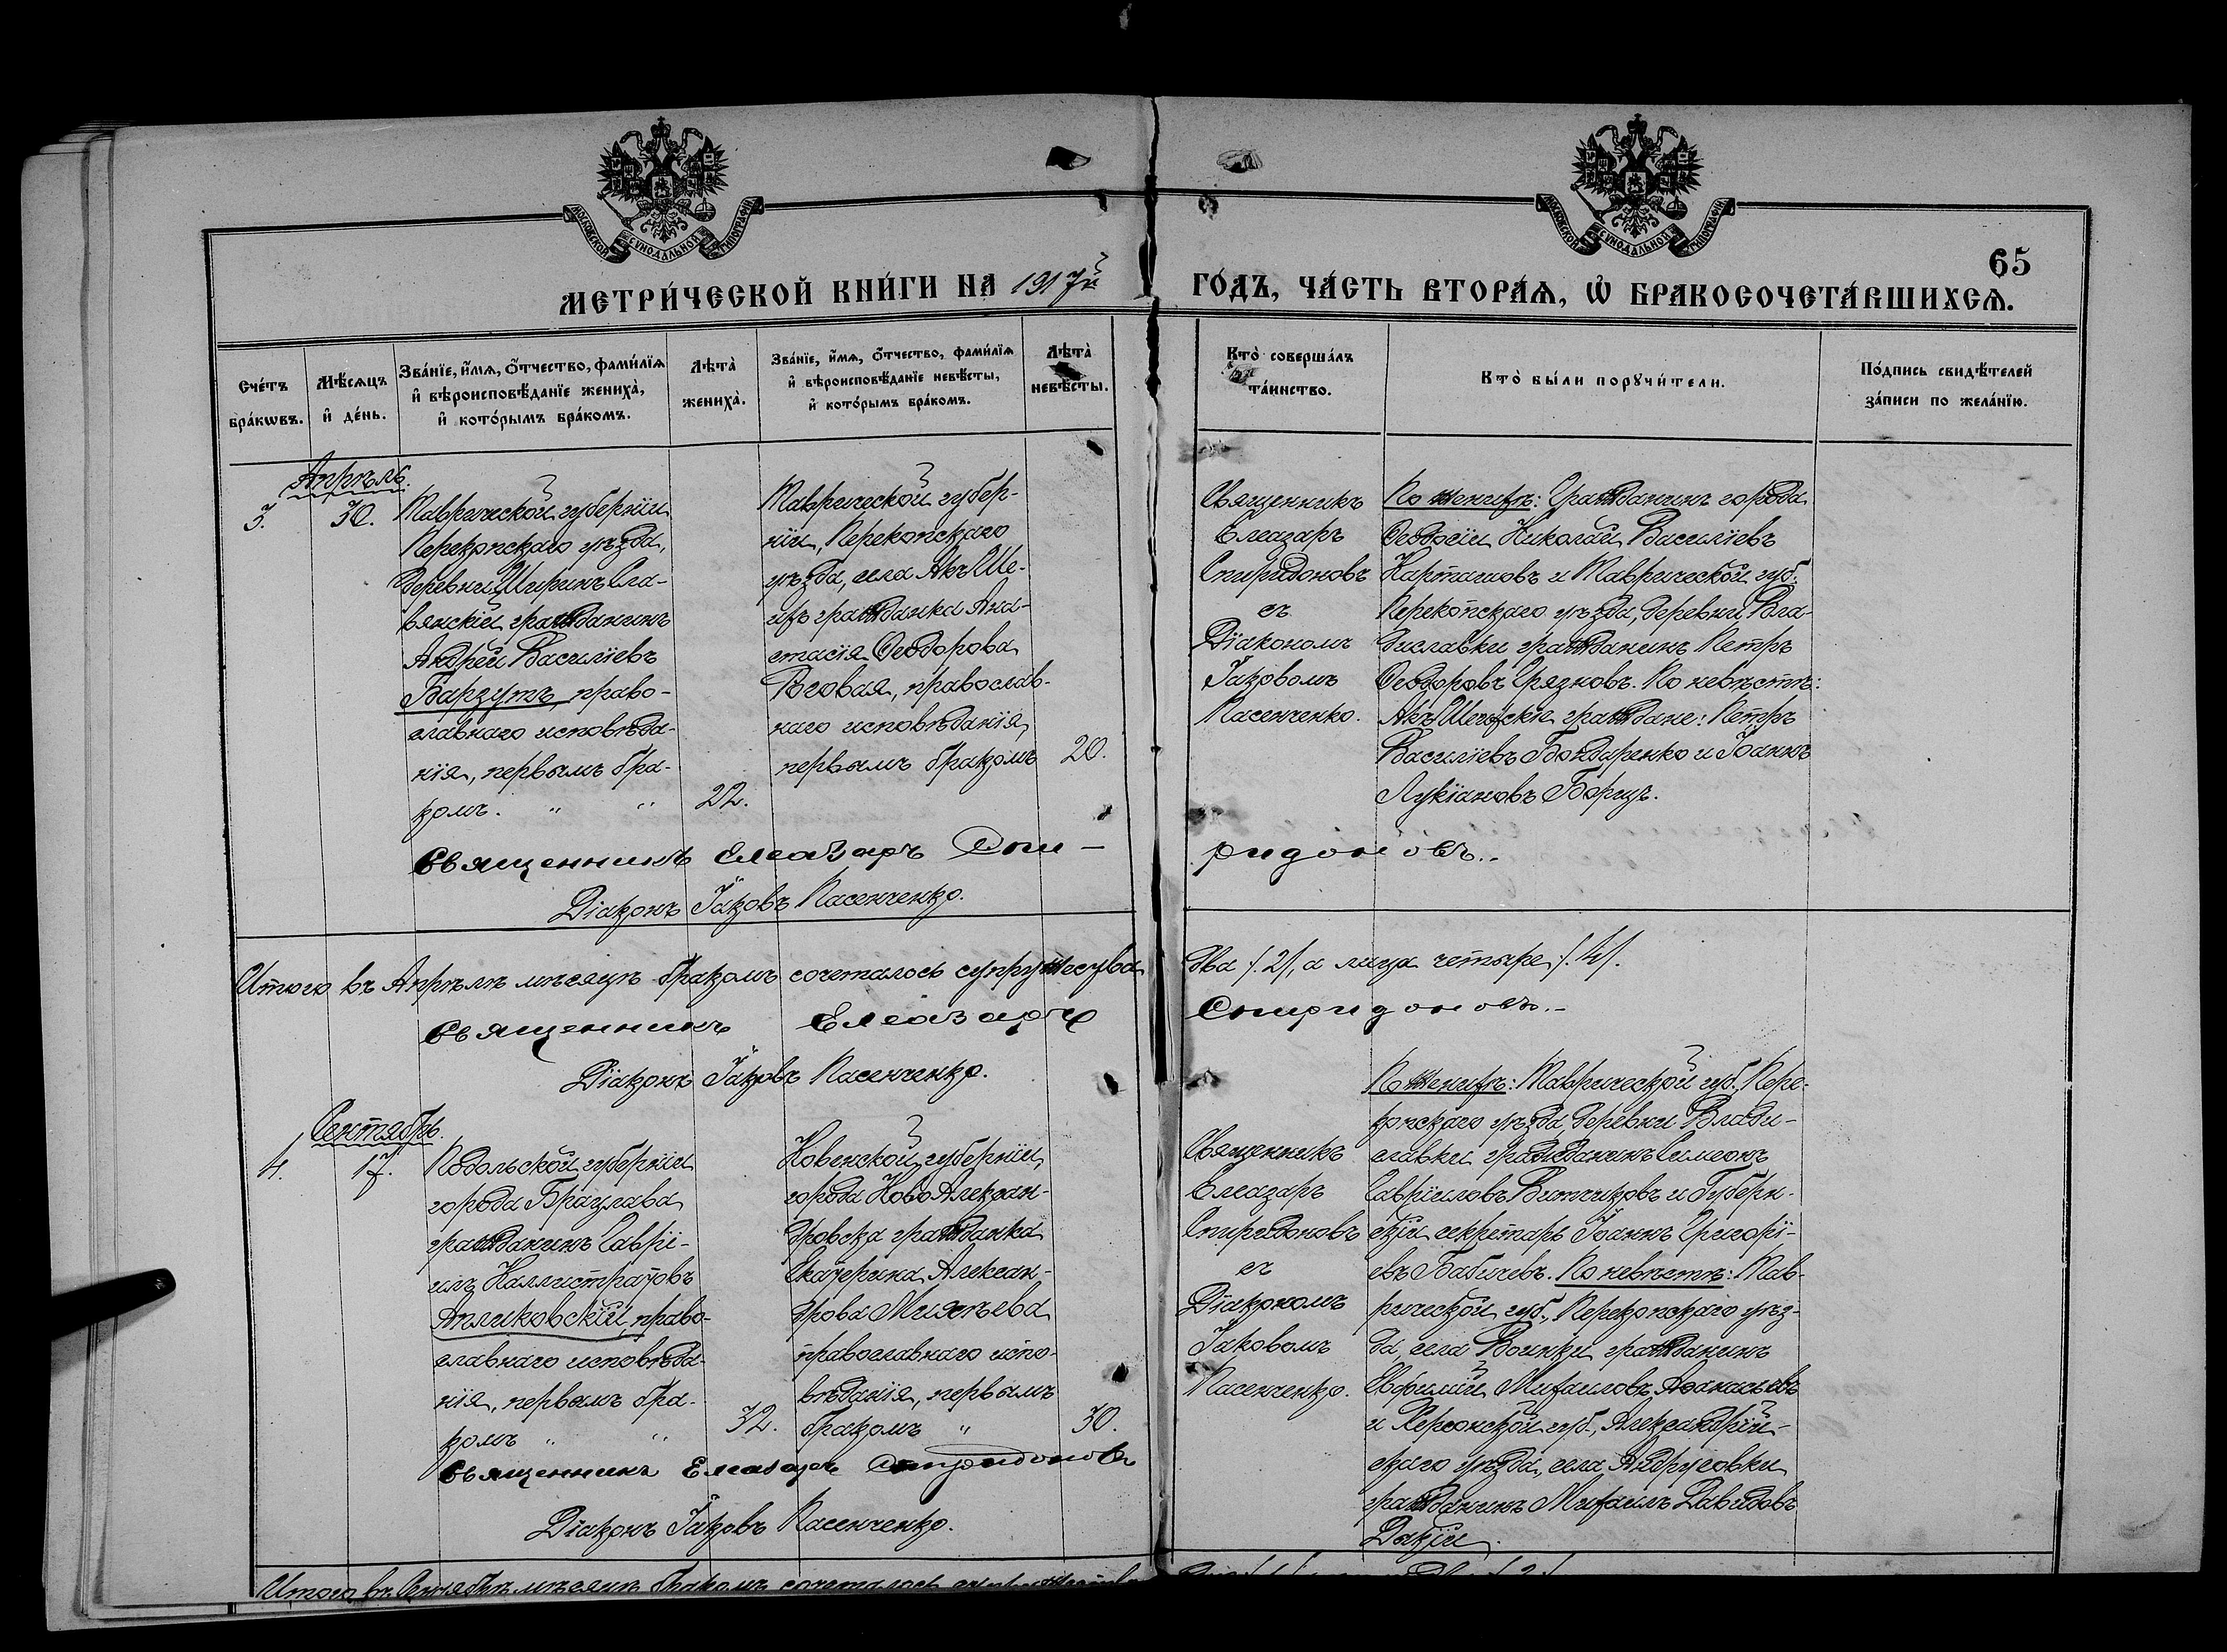 МОСКОВСКОЙ СѴНОДАЛЬНОЙ ТИПОГРАФІИ
МОСКОВСКОЙ СѴНОДАЛЬНОЙ ТИПОГРАФІИ
65
МЕТРИ́ЧЕСКОЙ КНИ́ГИ НА 1917й ГО́ДЪ, ЧА́СТЬ ВТОРА́Ѧ, Ѡ҆ БРАКОСОЧЕТА́ВШИХСѦ.
Сче́тъ
бра́кѡвъ.
Мѣ́сѧцъ
и҆ де́нь.
Зва́нїе, и҆́мѧ, ѻ҆́тчество, фами́лїѧ
и҆ вѣроисповѣ́данїе жениха̀,
и҆ кото́рымъ бра́комъ.
Лѣ́та
жениха̀.
Зва́нїе, и҆́мѧ, ѻ҆́тчество, фами́лїѧ
и҆ вѣроисповѣ́данїе невѣ́сты,
и҆ кото́рымъ бра́комъ.
Лѣ́та
невѣ́сты.
Кто̀ соверша́лъ
та́инство.
Кто̀ бы́ли порꙋчи́тели.
По́дпись свидѣ́телей
за́писи по жела́нїю.
Апрѣль.
3.
30.
Таврической губерніи
Перекопскаго уѣзда,
деревни Ширинъ Сла-
вянскій гражданинъ
Андрей Василіевъ
Барзутъ, право-
славнаго исповѣда-
нія, первымъ бра-
комъ. " "
22.
Таврической губер-
ніи, Перекопскаго
уѣзда, села Акъ Ше-
ихъ гражданка Ана-
стасія Ѳеодорова
Роговая, православ-
наго исповѣданія,
первымъ бракомъ
20.
Священникъ
Елеазаръ
Спиридоновъ
съ
Діакономъ
Іаковомъ
Пасенченко.
По женихѣ: Гражданинъ города
Ѳеодосіи Николай Василіевъ
Карташовъ и Таврической губ.
Перекопскаго уѣзда, деревни Вла-
диславки гражданинъ Петръ
Ѳеодоровъ Грязновъ. По невѣстѣ:
Акъ Шеихскіе граждане: Петръ
Василіевъ Бондаренко и Іоаннъ
Лукіановъ Борщъ.
Священникъ Елеазаръ Спи-ридоновъ.-
Діаконъ Іаковъ Пасенченко.
Итого въ Апрѣлѣ мѣсяцѣ бракомъ сочеталось супружества два /.2/, а лица четыре /.4/.
Священникъ Елеазаръ Спиридоновъ.-
Діаконъ Іаковъ Пасенченко.
Сентябрь.
4.
17.
Подольской губерніи
города Брацлава
гражданинъ Гаврі-
илъ Каллистратовъ
Апликовскій, право-
славнаго исповѣда-
нія, первымъ бра-
комъ " "
32.
Ковенской губерніи,
города Ново Алексан-
дровска гражданка
Екатерина Алексан-
дрова Михѣева
православнаго испо-
вѣданія, первымъ
бракомъ "
30.
Священникъ
Елеазаръ
Спиридоновъ
съ
Діакономъ
Іаковомъ
Пасенченко.
По женихѣ: Таврической губ. Пере-
копскаго уѣзда, деревни Влади-
славки гражданинъ Симеонъ
Гавріиловъ Витчиковъ и Губерн-
скій секретарь Іоаннъ Григорі-
евъ Бабичевъ. По невѣстѣ: Тав-
рической губ., Перекопскаго уѣз-
да, села Воинки гражданинъ
Евфимій Михаиловъ Аѳанасьевъ
и Херсонской губ., Александрій-
скаго уѣзда, села Андрусовки
гражданинъ Михаилъ Давидовъ
Дикій.
Священникъ Елеазаръ Спиридоновъ
Діаконъ Іаковъ Пасенченко.
Итого въ Сентябрѣ мѣсяцѣ бракомъ сочеталось